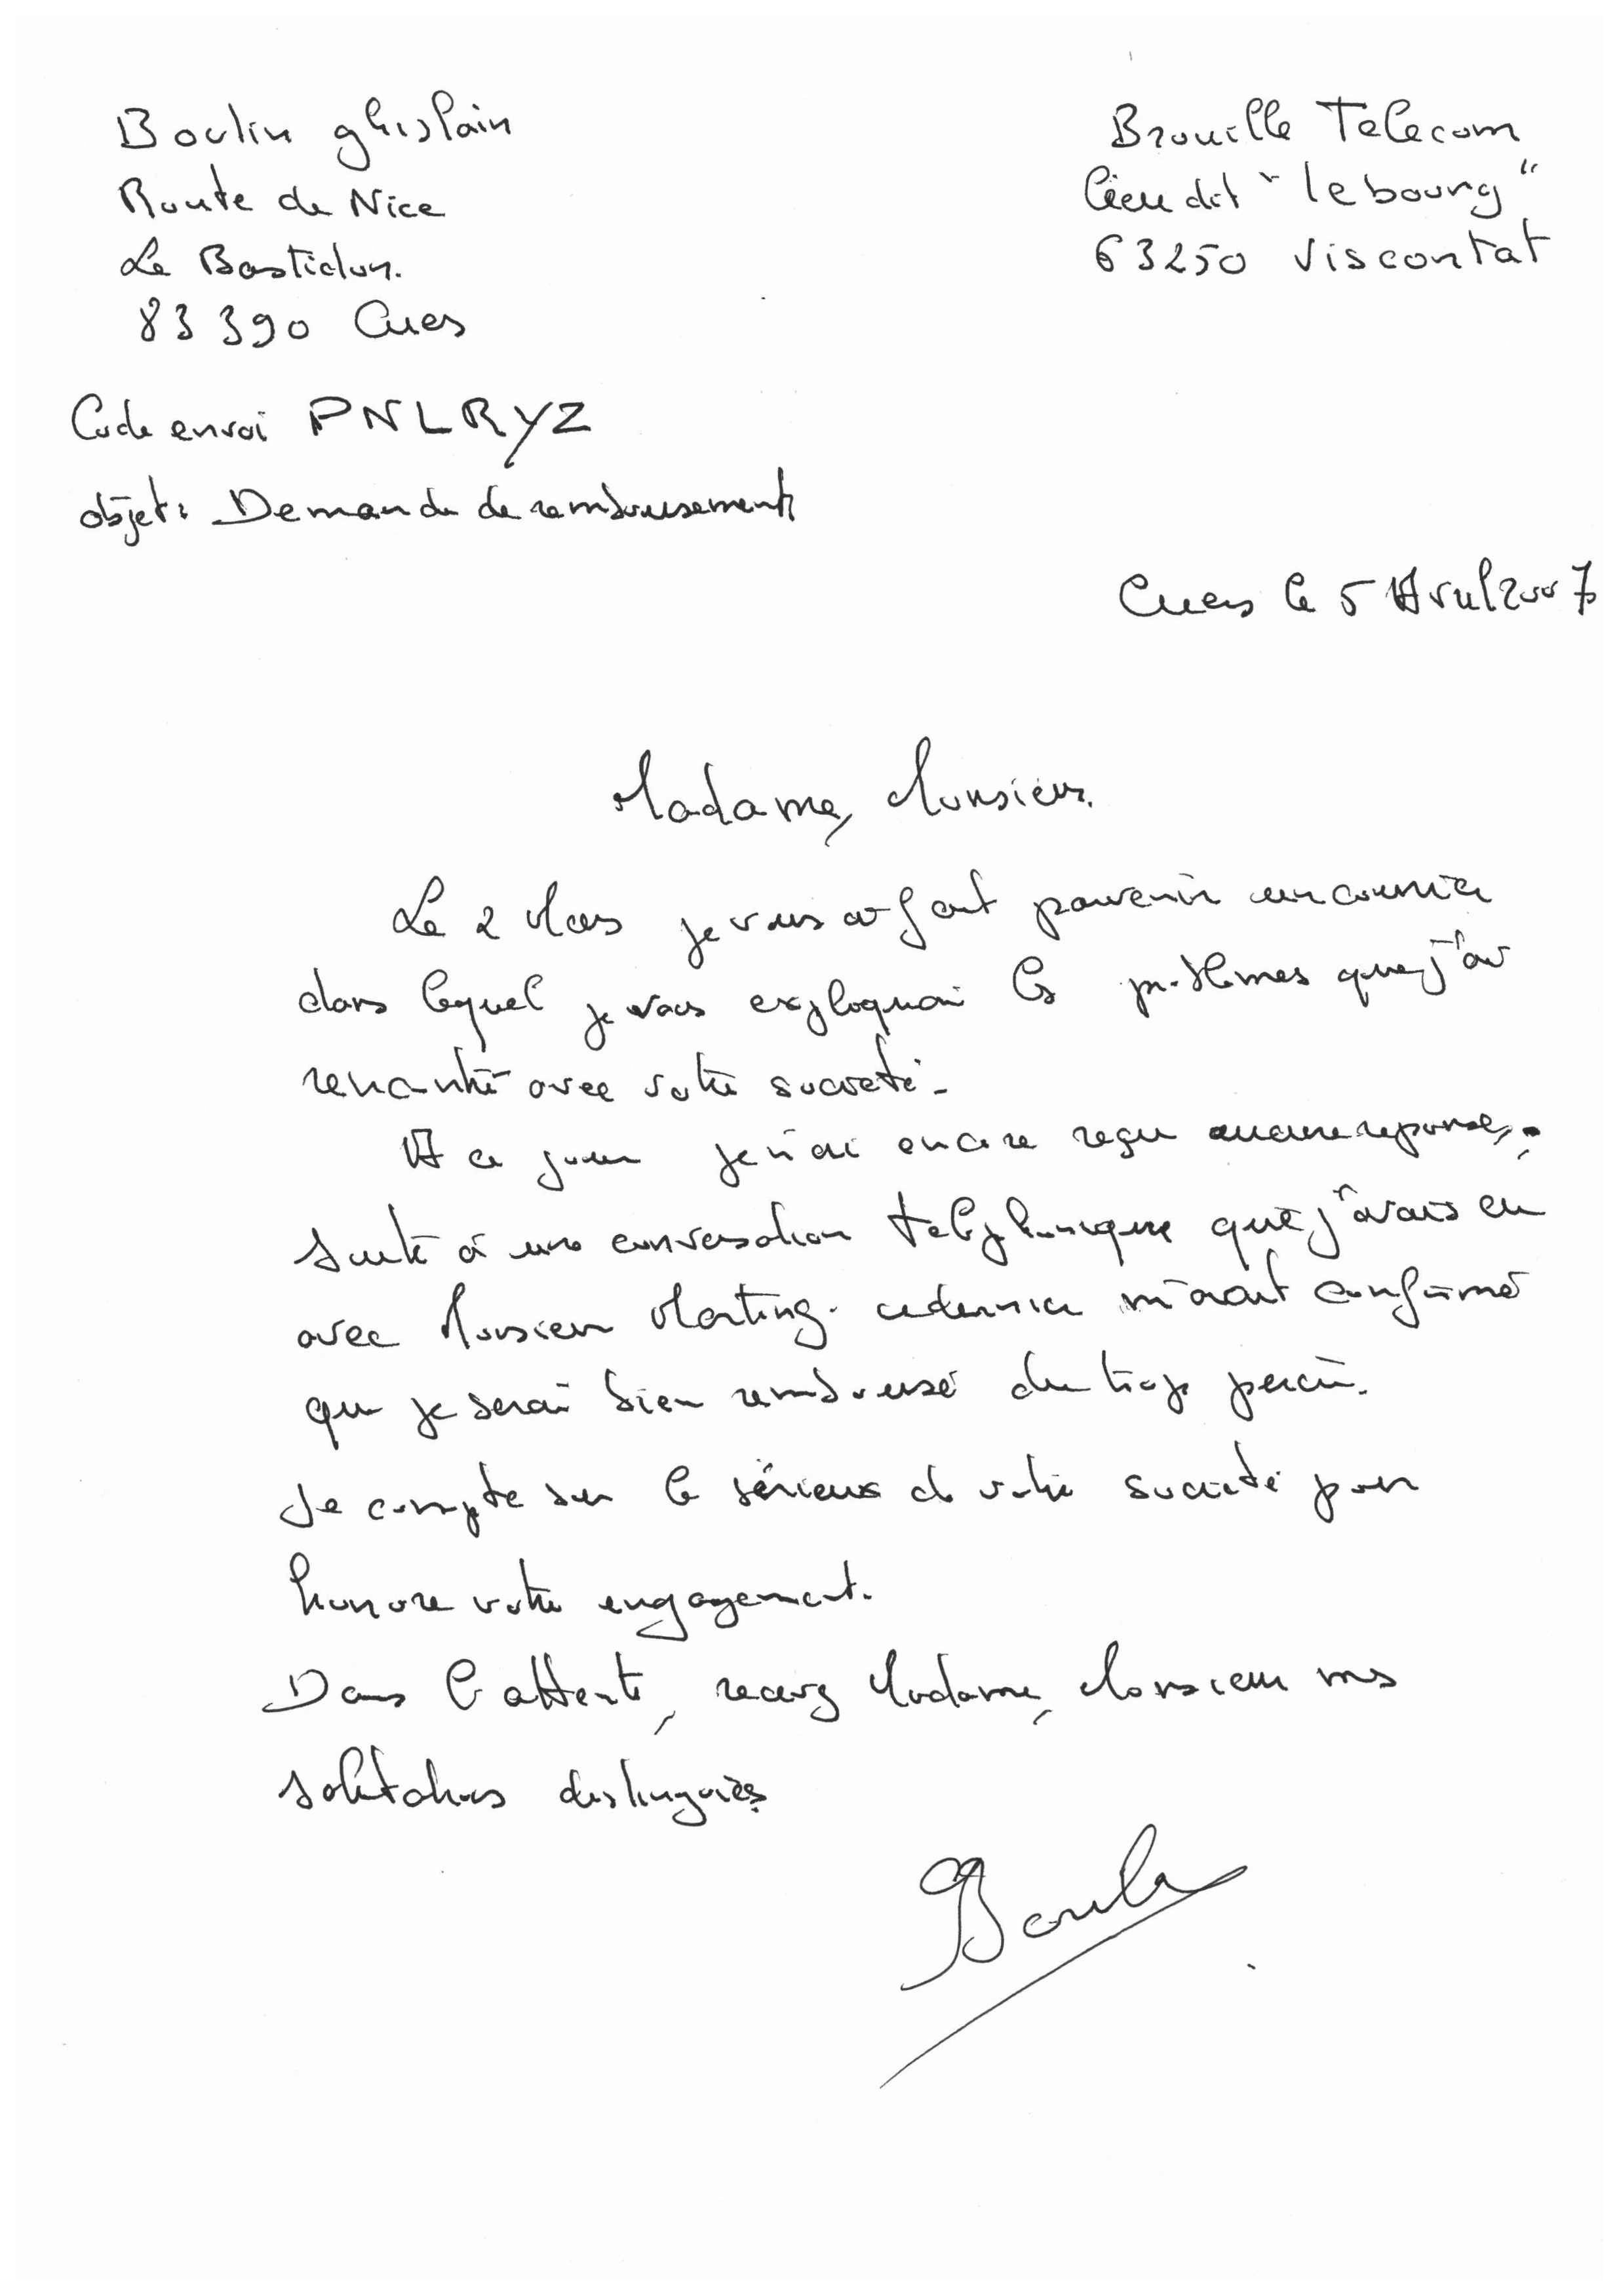 Boulin ghislain
Route de Nice
Le Bastidon.
83390 Cuers
Brouille Telecom
lieu dit "le bourg"
63250 Viscontat
Code envoi PNLRYZ
objet: Demande de remboursement
Cuers le 5 Avril 2007
Madame, Monsieur.
Le 2 Mars je vous ai fait parvenir un courrier
dans lequel je vous expliquai les problèmes que j'ai
rencontré avec votre société.
A ce jour je n'ai encore reçu aucune reponse,
suite à une conversation telephonique que j'avais eu
avec Monsieur ce dernier m'avait confirmé
que je serai bien remboursé du trop perçu.
Je compte sur le sérieux de votre société pour
honore votre engagement.
Dans l'attente, recevez Madame, Monsieur mes
salutations distinguées
Boulin